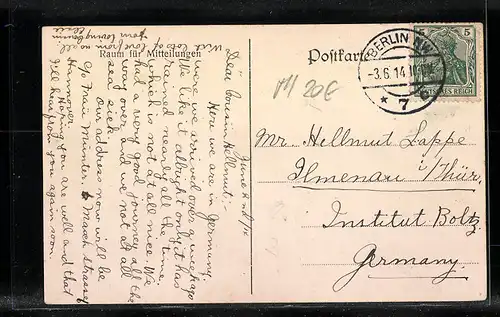 Raum für Mitteilungen
Postkarte
BERLIN NW
-3.6.14.
* 7 c
5 5
DEUTSCHES REICH
20€
June 2nd/14
Dear Cousin Hellmut:-
Here we are in germany
were we arrived over a week ago
We like it allright only it has
rained nearly all the time,
which is not at all nice We
had a very good journey all the
way over and we not at all
sea sick.
Our address now will be
c/o Frau Münter.
Hannover.
Hoping you are well and that
I'll hear from you again soon.
With lots of love from us all
from loving Cousin
Mr. Hellmut Lappe
Ilmenau i/Thür.
Institut Boltz
Germany.